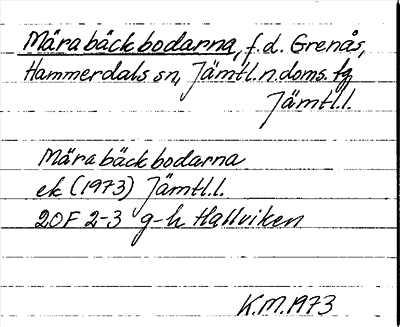 Märabäckbodarna, f.d. Grenås,
Hammerdals sn, Jämtl.n.doms.fg
Jämtl.l.
Märabäckbodarna
ek (1973) Jämtl.l.
20F 2-3 g-h Hallviken
K.M.1973